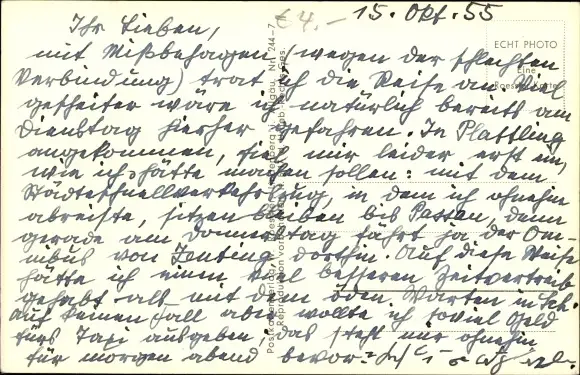 15. Okt. 55
€4.-
Ihr Lieben,
ECHT PHOTO
Eine
mit Mißbehagen (wegen der schlechten
Verbindung) trat ich die Reise an. Viel
gescheiter wäre ich natürlich bereits am
Dienstag hierher gefahren. In Plattling
angekommen, fiel mir leider erst ein,
wie ich's hätte machen sollen: mit dem
Städteschnellverkehrszug, in dem ich ohnehin
abreiste, sitzen bleiben bis Passau, denn
gerade am Donnerstag fährt ja der Om-
nibus von dorthin. Auf diese Weise
hätte ich einen viel besseren Zeitvertreib
gehabt als mit dem öden Warten in
Auf keinen Fall aber wollte ich soviel Geld
fürs Taxi ausgeben, das steht mir ohnehin
für morgen abend bevor.